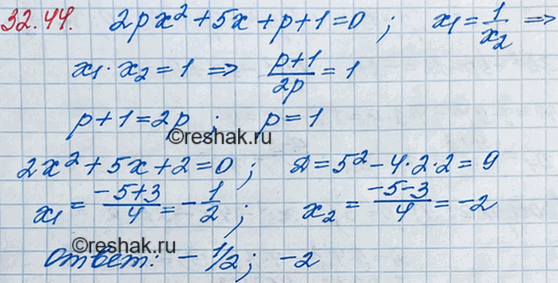 32.44. 2px² + 5x + p + 1 = 0 ; x₁ = 1/x₂ ⇒
x₁ · x₂ = 1 ⇒ (p+1)/2p = 1
p + 1 = 2p ; p = 1
©reshak.ru
2x² + 5x + 2 = 0 ; D = 5² - 4·2·2 = 9
x₁ = (-5+3)/4 = -1/2 ; x₂ = (-5-3)/4 = -2
©reshak.ru
Ответ: - 1/2 ; -2